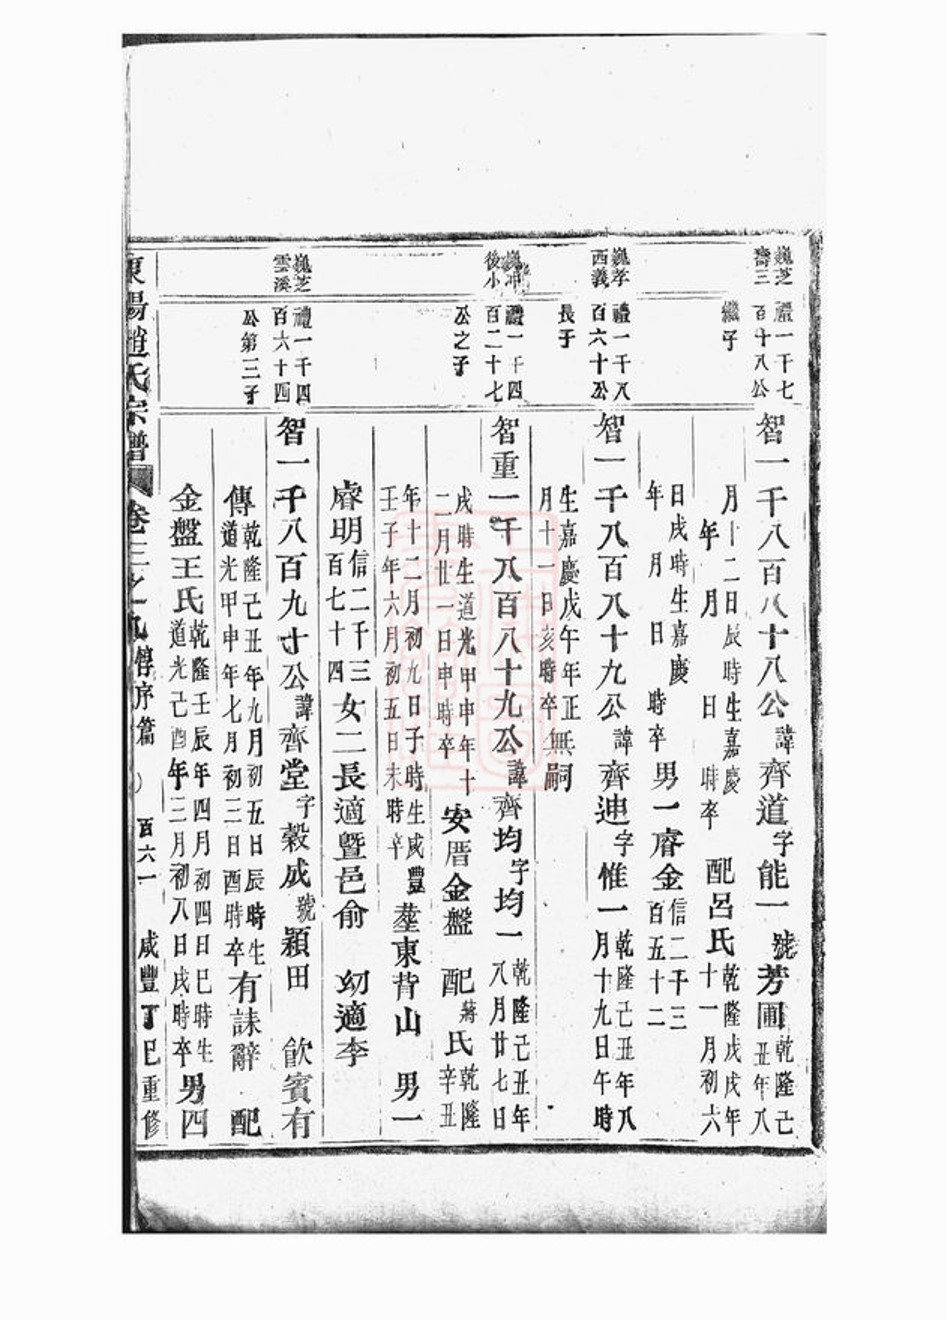 巍芝
齋三
禮一千七
百十八公
繼子
智一千八百八十八公諱齊道字能一號芳圃乾隆己
丑年八
月十二日辰時生嘉慶
年 月 日 時卒
配呂氏乾隆戊戌年
十一月初六
日戌時生嘉慶
年 月 日 時卒
男一睿金信二千三
百五十二
巍孝
西義
禮一千八
百六十公
長子
智一千八百八十九公諱齊迪字惟一乾隆己丑年八
月十九日午時
生嘉慶戊午年正
月十一日亥時卒
無嗣
巍坤
後小
禮一千四
百二十七
公之子
智重一千八百八十九公諱齊均字均一乾隆己丑年
八月廿七日
戌時生道光甲申年十
二月廿一日申時卒
安厝金盤 配蔣氏乾隆
辛丑
年十二月初九日子時生咸豐
壬子年六月初五日未時卒
塟東背山 男一
睿明信二千三
百七十四
女二長適暨邑俞 幼適李
巍芝
雲溪
禮一千四
百六十四
公第三子
智一千八百九十公諱齊堂字穀成號穎田 飲賓有
傳乾隆己丑年九月初五日辰時生
道光甲申年七月初三日酉時卒
有誄辭 配
金盤王氏乾隆壬辰年四月初四日巳時生
道光己酉年三月初八日戌時卒
男四
東陽趙氏宗譜 卷三之一九 惇序篇 百六一 咸豐丁巳重修